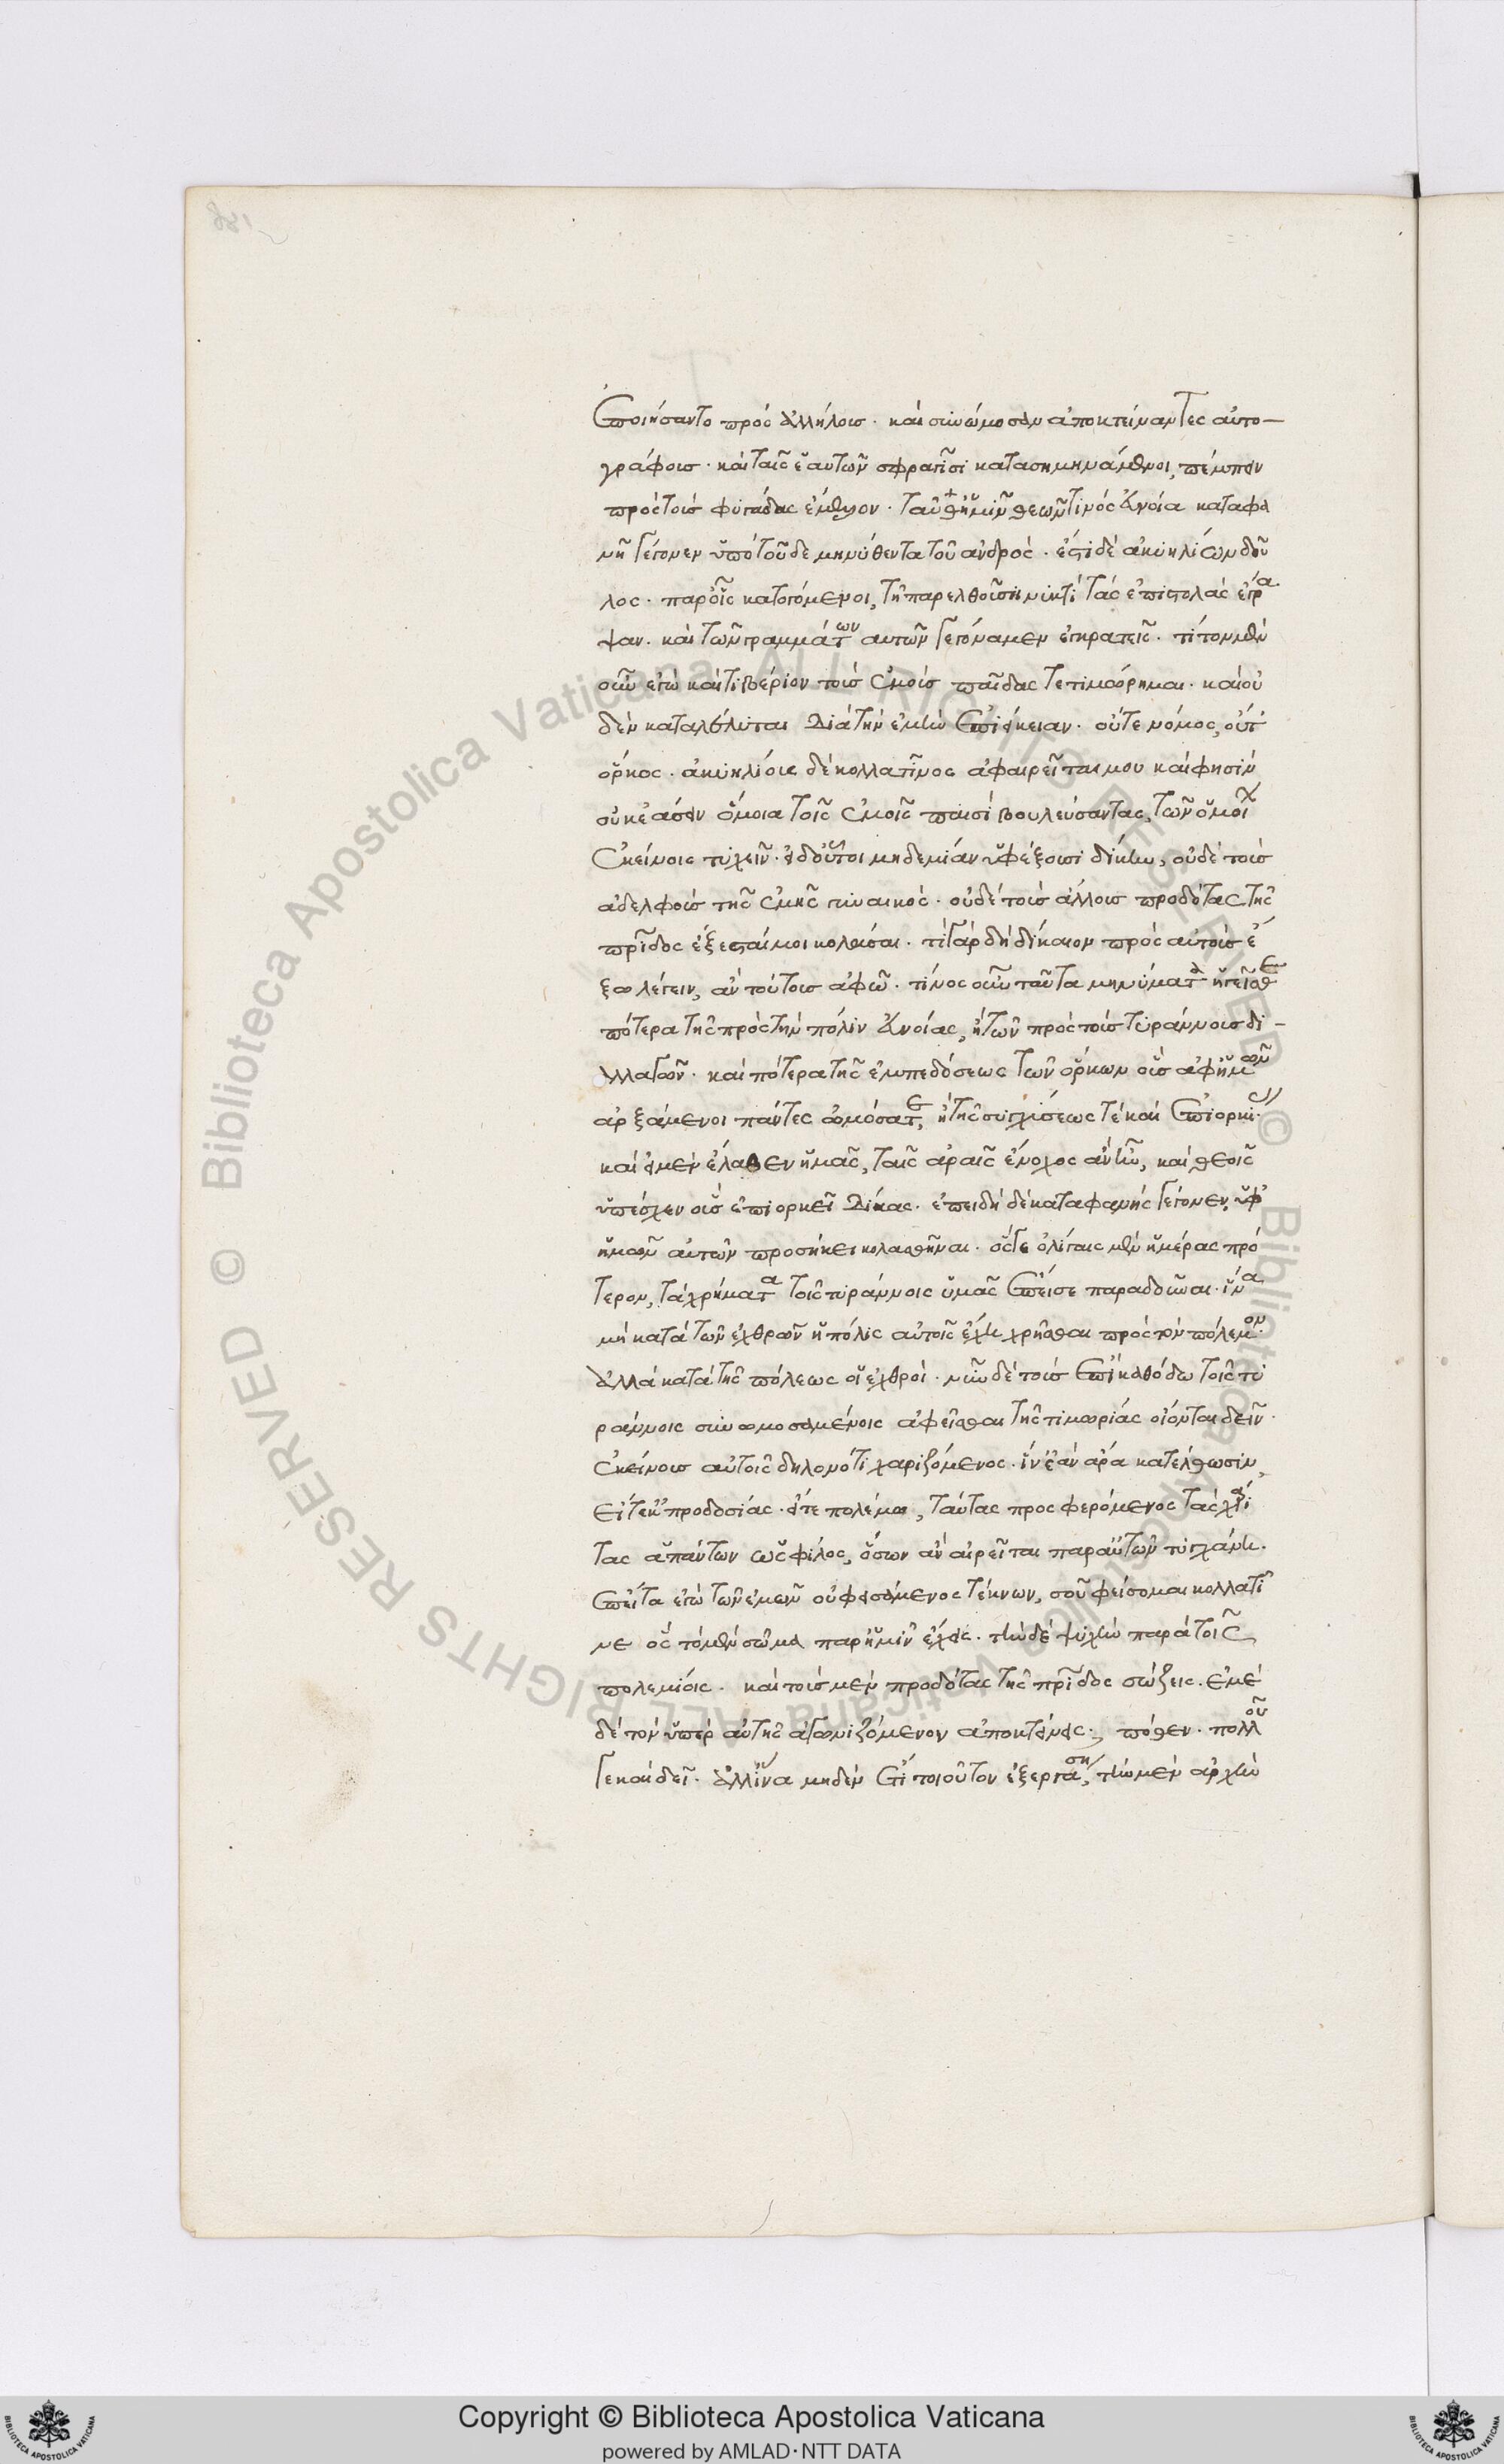 ἐποιήσαντο πρὸς ἀλλήλους. καὶ συνώμοσαν ἀποκτείναντες αὐτο-
γράφους. καὶ ταῖς ἑαυτῶν σφραγῖσι κατασημηνάμενοι, πέμπειν
πρὸς τοὺς φυγάδας ἔμελλον. ταῦθ' ἡμῖν θεῶν τινὸς εὐνοία καταφα
νῆ γέγονεν ὑπὸ τοῦδε μηνύθεντα τοῦ ἀνδρός. ἔστι δὲ ἀκυηλίων δοῦ
λος. παρ' οἷς κατογόμενοι, τῇ παρελθούσῃ νυκτὶ τὰς ἐπιστολὰς ἔγρα
ψαν. καὶ τῶν γραμμάτων αυτῶν γεγόναμεν ἐγκρατεῖς. τίτον μὲν
οὖν ἐγὼ καὶ τιβέριον τοὺς ἐμοὺς παῖδας τετιμώρημαι. καὶ οὐ
δὲν καταλέλυται διὰ τὴν ἐμὴν ἐπιείκειαν. οὔτε νόμος, οὔτ'
ὅρκος. ἀκυηλίους δὲ κολλατῖνος ἀφαιρεῖται μου καὶ φησὶν
οὐκ ἐάσειν ὅμοια τοῖς ἐμοῖς παισὶ βουλεύσαντας, τῶν ὁμοί
ἐκείνοις τυχεῖν. εἰ δ' οὗτοι μηδεμίαν ὑφέξουσι δίκην, οὐδὲ τοὺς
ἀδελφοὺς τῆς ἐμῆς γυναικός. οὐδὲ τοὺς ἄλλους προδότας τῆς
πρίδος ἐξέσται μοι κολάσαι. τί γὰρ δὴ δίκαιον πρὸς αὐτοὺς ἐ
ξω λέγειν, ἂν τούτους ἀφῶ. τίνος οὖν ταῦτα μηνύματα ἡγεῖσθε
πότερα τῆς πρὸς τὴν πόλιν εὐνοίας, ἢ τῶν πρὸς τοὺς τυράννους δι-
αλλαγῶν. καὶ πότερα τῆς ἐμπεδόσεως τῶν ὅρκων οὓς ἀφ' ἡμῶν
ἀρξάμενοι πάντες ὠμόσατε, ἢ τῆς συγχύσεως τὲ καὶ ἐπιορκί
καὶ εἰ μὲν ἔλαθεν ἡμᾶς, ταῖς ἀραῖς ἔνοχος ἂν ἦν, καὶ θεοῖς
ὑπέσχεν οὓς ἐπιορκεῖ δίκας. ἐπειδὴ δὲ καταφανὴς γέγονεν, ὑφ'
ἡμῶν αὐτῶν προσήκει κολασθῆναι. ὅς γε ὀλίγαις μὲν ἡμέρας πρό
τερον, τὰ χρήματα τοῖς τυράννοις ὑμᾶς ἔπεισε παραδοῦναι. ἵνα
μὴ κατὰ τῶν ἐχθρῶν ἡ πόλις αὐτοῖς ἔχῃ χρῆσθαι πρὸς τὸν πόλεμον
ἀλλὰ κατὰ τῆς πόλεως οἱ ἐχθροί. νῦν δὲ τοὺς ἐπὶ καθόδω τοῖς τυ
ράννοις συνωμοσαμένοις ἀφεῖσθαι τῆς τιμωρίας οἰόνται δεῖν.
ἐκείνους αὐτοῖς δηλονότι χαριζόμενος. ἵν' ἐὰν ἄρα κατέλθωσιν,
εἴτε ἐκ προδοσίας. εἴτε πολέμω, ταύτας προςφερόμενος τὰς χάρι
τας ἁπάντων ὡς φίλος, ὅσων ἂν αἱρεῖται παρ' αὐτῶν τυγχάνῃ.
ἔπειτα ἐγὼ τῶν ἐμῶν οὐ φεισάμενος τέκνων, σοῦ φείσομαι κολλατῖ
νε ὃς τὸ μὲν σῶμα παρ' ἡμῖν ἔχεις. τὴν δὲ ψυχὴν παρὰ τοῖς
πολεμίοις. καὶ τοὺς μὲν προδότας τῆς πρίδος σώζεις. ἐμὲ
δὲ τὸν ὑπὲρ αὐτῆς ἀγωνιζόμενον ἀποκτείνεις. πόθεν. πολλοῦ
γε καὶ δεῖ. ἀλλ' ἵνα μηδὲν ἔτι τοιοῦτον ἐξεργάση, τὴν μὲν ἀρχὴν